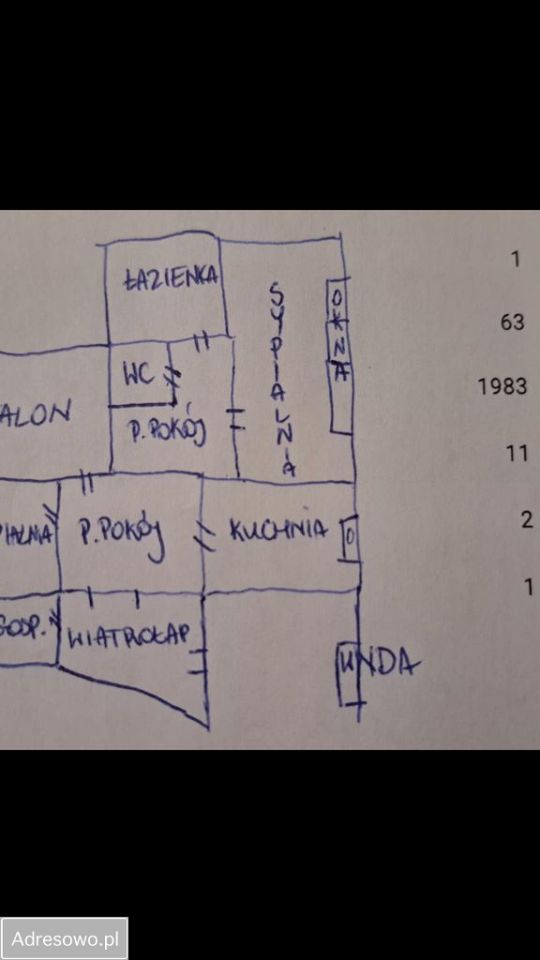 ŁAZIENKA
SYPIALNIA
OKNA
WC
ALON
P.POKÓJ
PIALNA
P.POKÓJ
KUCHNIA
O
GOSP.
WIATROŁAP
WINDA
1
63
1983
11
2
1
Adresowo.pl